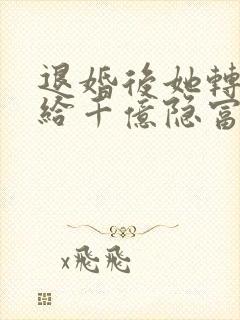 退婚後她轉
給千億隐富
x飛飛